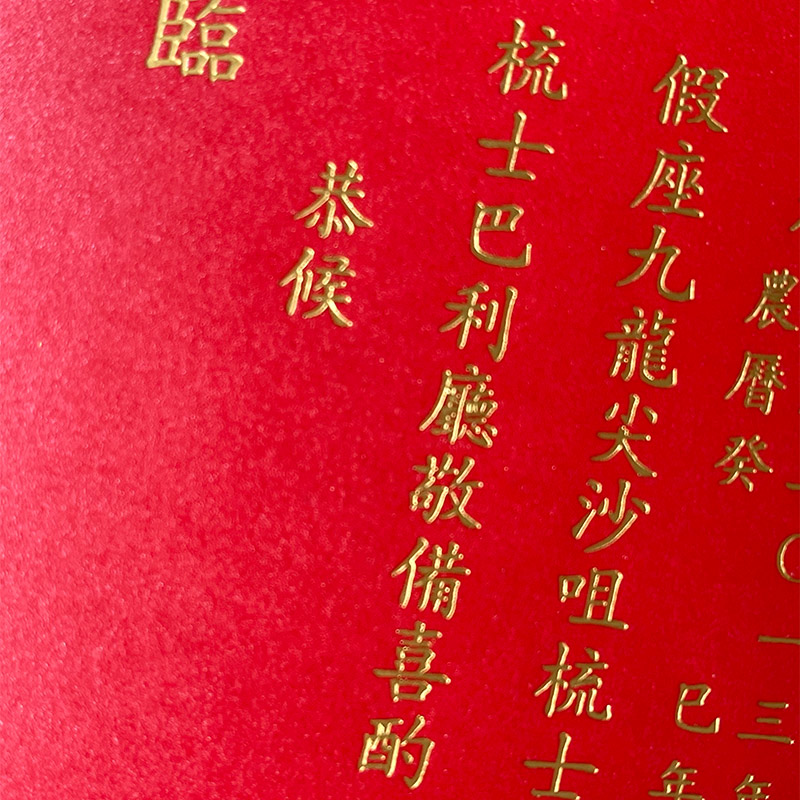 〇一三年
農曆癸巳年
假座九龍尖沙咀梳士
梳士巴利廳敬備喜酌
恭候
臨